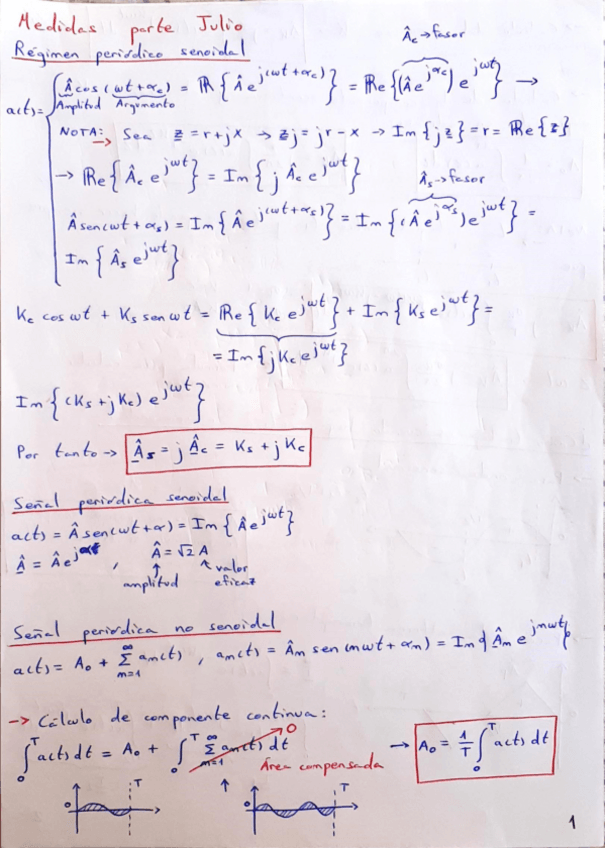 Medidas parte Julio
Régimen periódico senoidal
Â_c → fasor
a(t) = { Â cos (ωt + α_c) = Re { Â e^{j(ωt + α_c)} } = Re { (Â e^{jα_c}) e^{jωt} } →
Amplitud Argumento
NOTA: → Sea z = r + jx → zj = jr - x → Im { j z } = r = Re { z }
→ Re { Â_c e^{jωt} } = Im { j Â_c e^{jωt} }
Â_s → fasor
Â sen(ωt + α_s) = Im { Â e^{j(ωt + α_s)} } = Im { (Â e^{jα_s}) e^{jωt} } =
Im { Â_s e^{jωt} }
K_c cos ωt + K_s sen ωt = Re { K_c e^{jωt} } + Im { K_s e^{jωt} } =
= Im { j K_c e^{jωt} }
Im { (K_s + j K_c) e^{jωt} }
Por tanto → Â_s = j Â_c = K_s + j K_c
Señal periódica senoidal
a(t) = Â sen(ωt + α) = Im { Â e^{jωt} }
Â = Â e^{jα} , Â = √2 A
↑ amplitud ↖ valor eficaz
Señal periódica no senoidal
a(t) = A₀ + ∑_{m=1}^{∞} a_m(t) , a_m(t) = Â_m sen (mωt + α_m) = Im { Â_m e^{jmωt} }
→ Cálculo de componente continua:
∫₀^T a(t) dt = A₀ + ∫₀^T ∑_{m=1}^{∞} a_m(t) dt → A₀ = 1/T ∫₀^T a(t) dt
0
Área compensada
↑
0 T
0 T
1